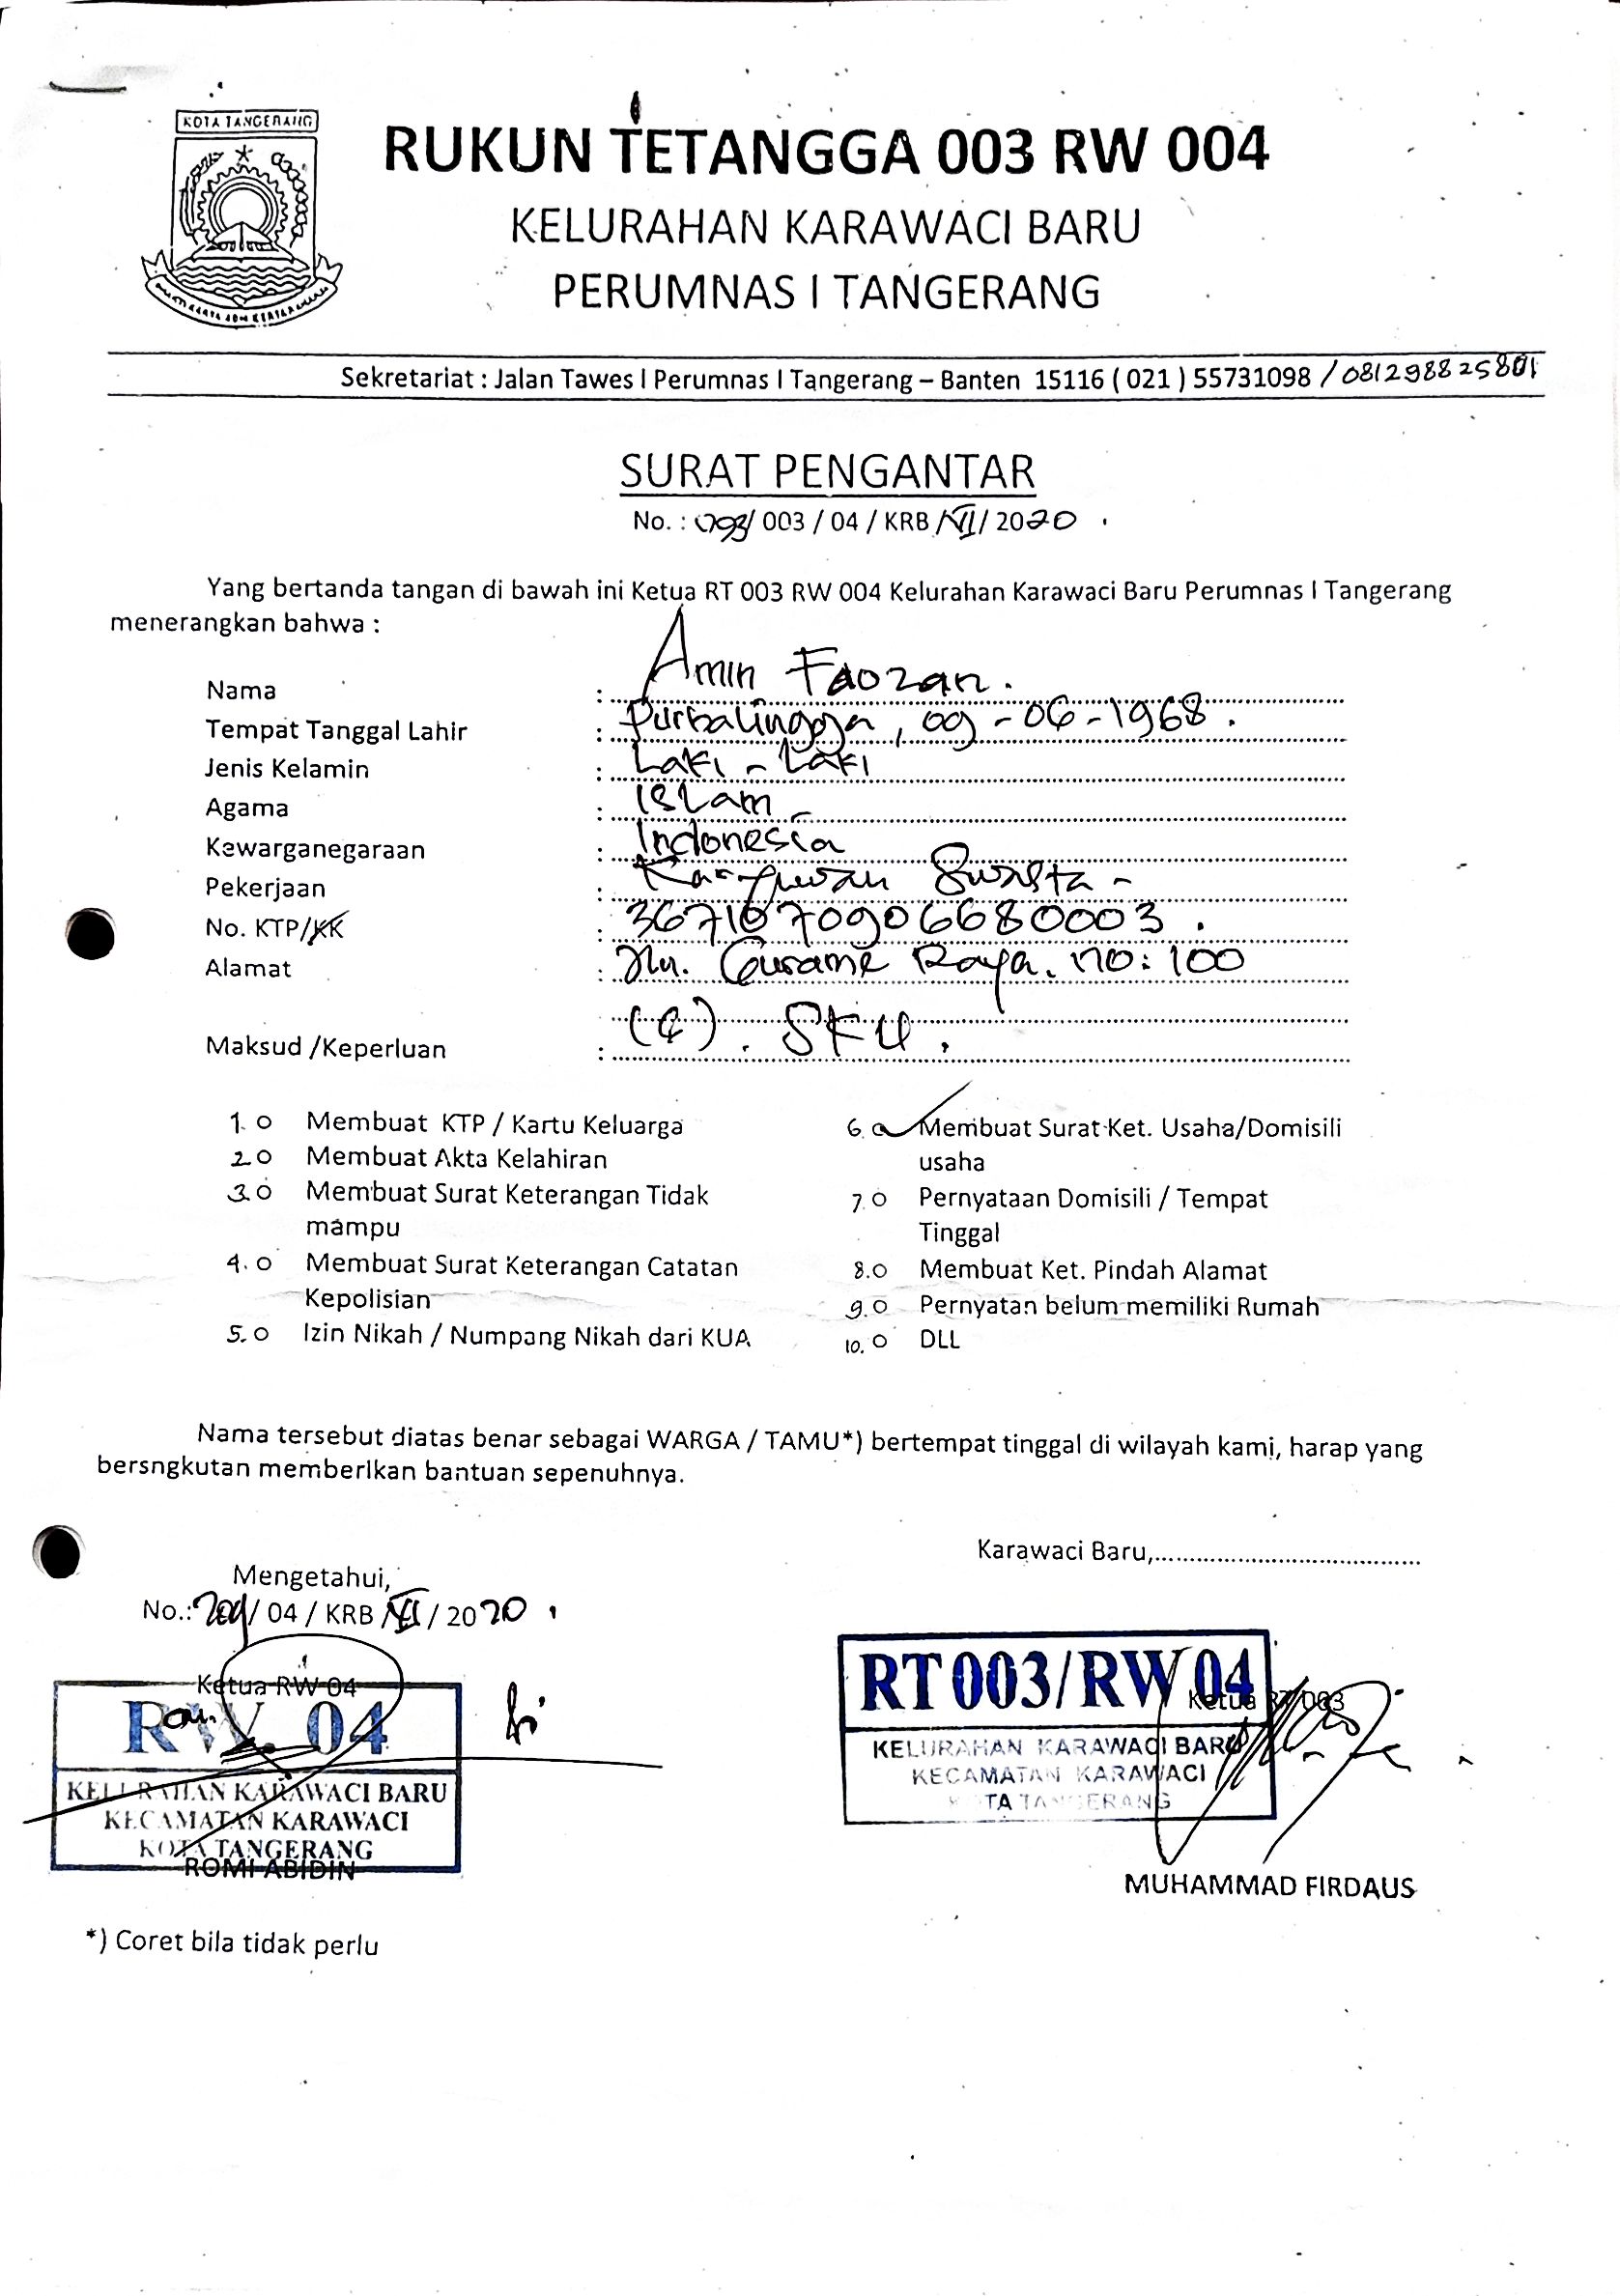 KOTA TANGERANG
RUKUN TETANGGA 003 RW 004
KELURAHAN KARAWACI BARU
PERUMNAS I TANGERANG
Sekretariat : Jalan Tawes I Perumnas I Tangerang – Banten 15116 ( 021 ) 55731098 / 081298825801
SURAT PENGANTAR
No. : 093/ 003 / 04 / KRB /VII/ 2020
Yang bertanda tangan di bawah ini Ketua RT 003 RW 004 Kelurahan Karawaci Baru Perumnas I Tangerang
menerangkan bahwa :
Nama : Amin Faozan.
Tempat Tanggal Lahir : Purbalingga, 09-06-1968.
Jenis Kelamin : Laki-Laki
Agama : Islam
Kewarganegaraan : Indonesia
Pekerjaan : Karyawan Swasta -
No. KTP/KK : 3671070906680003.
Alamat : Jln. Gurame Raya. no: 100
Maksud /Keperluan : (6). SKU.
1. O Membuat KTP / Kartu Keluarga
2. O Membuat Akta Kelahiran
3. O Membuat Surat Keterangan Tidak
mampu
4. O Membuat Surat Keterangan Catatan
Kepolisian
5. O Izin Nikah / Numpang Nikah dari KUA
6. O Membuat Surat Ket. Usaha/Domisili
usaha
7. O Pernyataan Domisili / Tempat
Tinggal
8. O Membuat Ket. Pindah Alamat
9. O Pernyatan belum memiliki Rumah
10. O DLL
Nama tersebut diatas benar sebagai WARGA / TAMU*) bertempat tinggal di wilayah kami, harap yang
bersngkutan memberikan bantuan sepenuhnya.
Karawaci Baru,
Mengetahui,
No.: / 04 / KRB / / 2020
Ketua RW 04
RW. 04
KELURAHAN KARAWACI BARU
KECAMATAN KARAWACI
KOTA TANGERANG
ROMI ABIDIN
RT 003/RW 04
Ketua RT 003
KELURAHAN KARAWACI BARU
KECAMATAN KARAWACI
KOTA TANGERANG
MUHAMMAD FIRDAUS
*) Coret bila tidak perlu